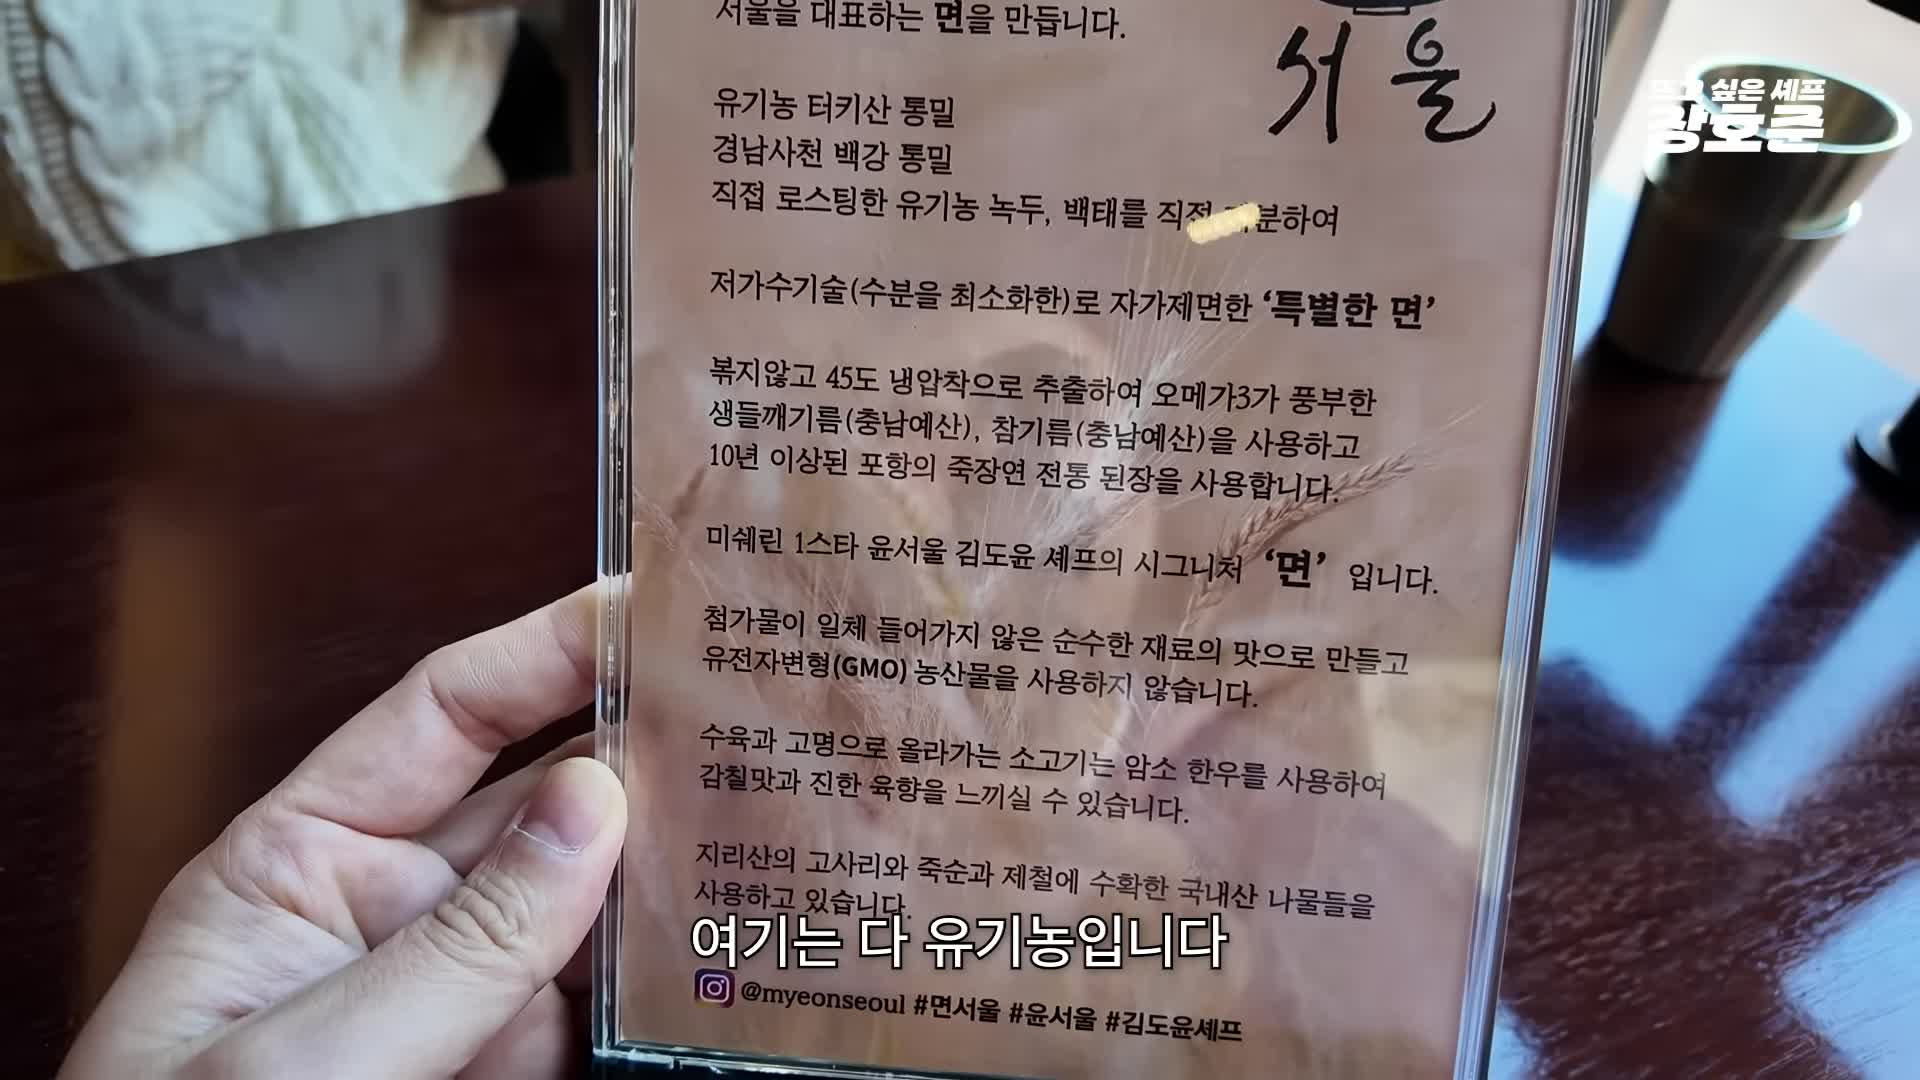 서울을 대표하는 면을 만듭니다.
서울
유기농 터키산 통밀
경남사천 백강 통밀
직접 로스팅한 유기농 녹두, 백태를 직접 제분하여
저가수기술(수분을 최소화한)로 자가제면한 ‘특별한 면’
볶지않고 45도 냉압착으로 추출하여 오메가3가 풍부한
생들깨기름(충남예산), 참기름(충남예산)을 사용하고
10년 이상된 포항의 죽장연 전통 된장을 사용합니다.
미쉐린 1스타 윤서울 김도윤 셰프의 시그니처 ‘면’ 입니다.
첨가물이 일체 들어가지 않은 순수한 재료의 맛으로 만들고
유전자변형(GMO) 농산물을 사용하지 않습니다.
수육과 고명으로 올라가는 소고기는 암소 한우를 사용하여
감칠맛과 진한 육향을 느끼실 수 있습니다.
지리산의 고사리와 죽순과 제철에 수확한 국내산 나물들을
사용하고 있습니다.
여기는 다 유기농입니다
@myeonseoul #면서울 #윤서울 #김도윤셰프
싶은 셰프
장호준